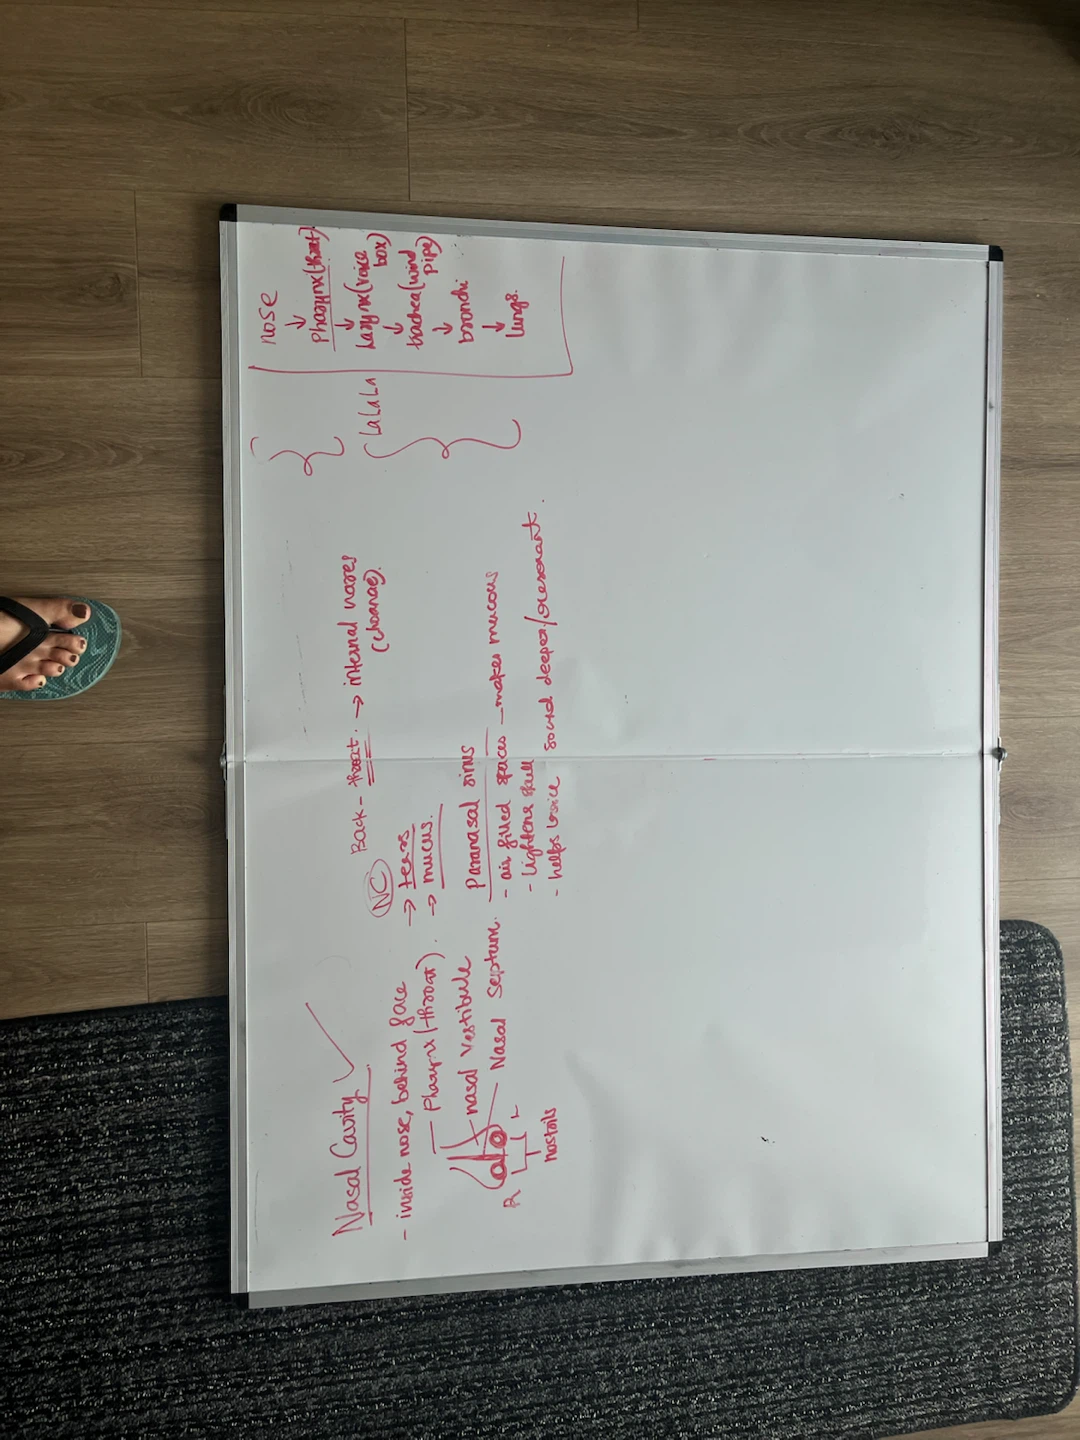 Nasal Cavity
- inside nose, behind face
- Pharynx (throat).
nasal vestibule
Nasal Septum.
R L
nostrils
Back - throat. → internal nares
(choanae).
NC
→ tears
→ mucus.
Paranasal sinus
- air filled spaces - makes mucous
- lightens skull
- helps voice sound deeper/resonant.
LaLaLa
nose
↓
Pharynx (throat)
↓
Larynx (voice
box)
↓
trachea (wind
pipe)
↓
bronchi
↓
lungs.